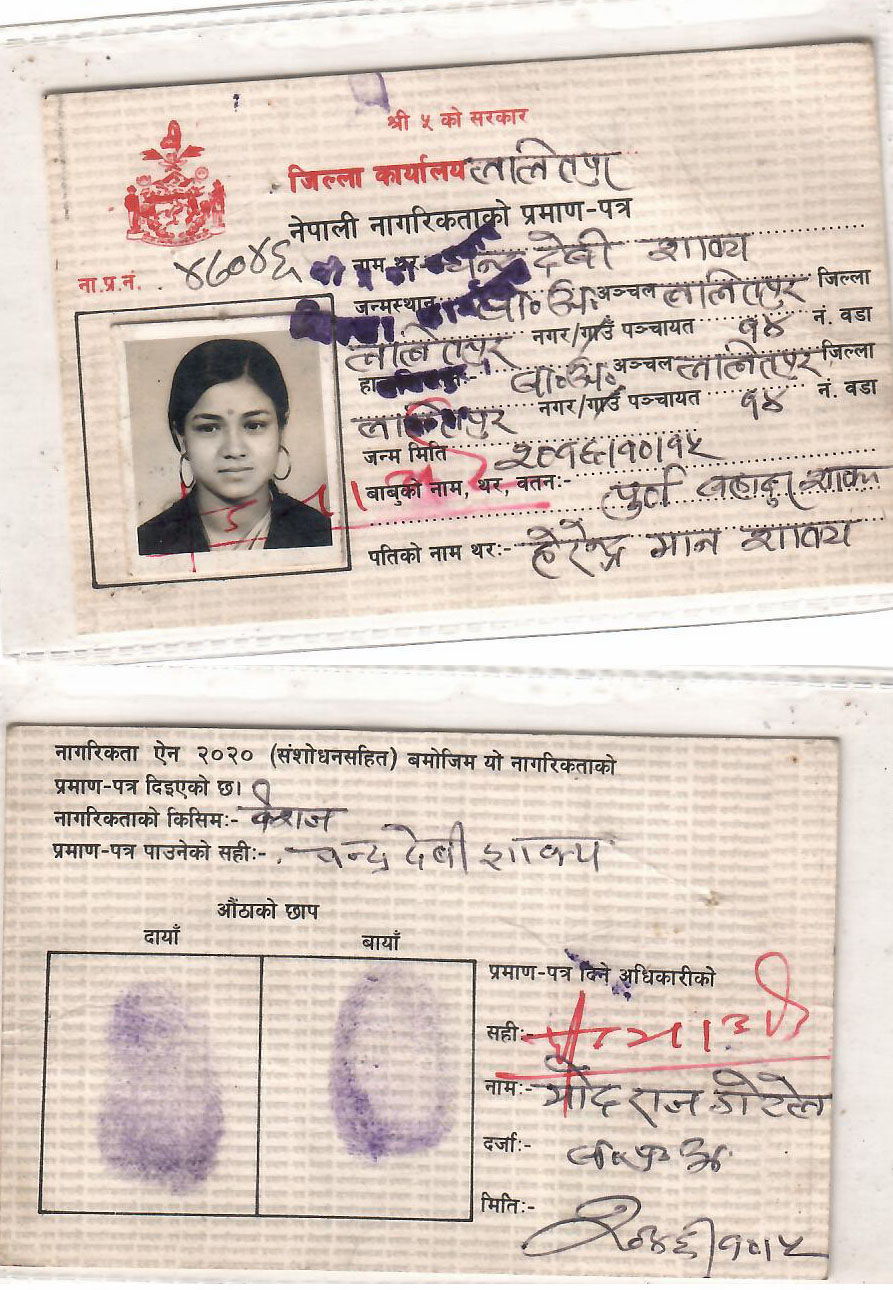 श्री ५ को सरकार
जिल्ला कार्यालय ललितपुर
नेपाली नागरिकताको प्रमाण-पत्र
ना.प्र.नं. ४८०४६ नाम थर चन्द्र देवी शाक्य
जन्मस्थान बा॰अं॰ अञ्चल ललितपुर जिल्ला
ललितपुर नगर/गाउँ पञ्चायत १४ नं. वडा
बा॰अं॰ अञ्चल ललितपुर जिल्ला
ललितपुर नगर/गाउँ पञ्चायत १४ नं. वडा
जन्म मिति २०१६।१०।१५
बाबुको नाम, थर, वतन:- पूर्ण बहादुर शाक्य
पतिको नाम थर:- हेरेन्द्र मान शाक्य
नागरिकता ऐन २०२० (संशोधनसहित) बमोजिम यो नागरिकताको
प्रमाण-पत्र दिइएको छ।
नागरिकताको किसिम:- वंशज
प्रमाण-पत्र पाउनेको सही:- चन्द्र देवी शाक्य
औंठाको छाप
दायाँ बायाँ
प्रमाण-पत्र दिने अधिकारीको
सही:-
नाम:- राज
दर्जा:-
मिति:- २०४६।१०।५